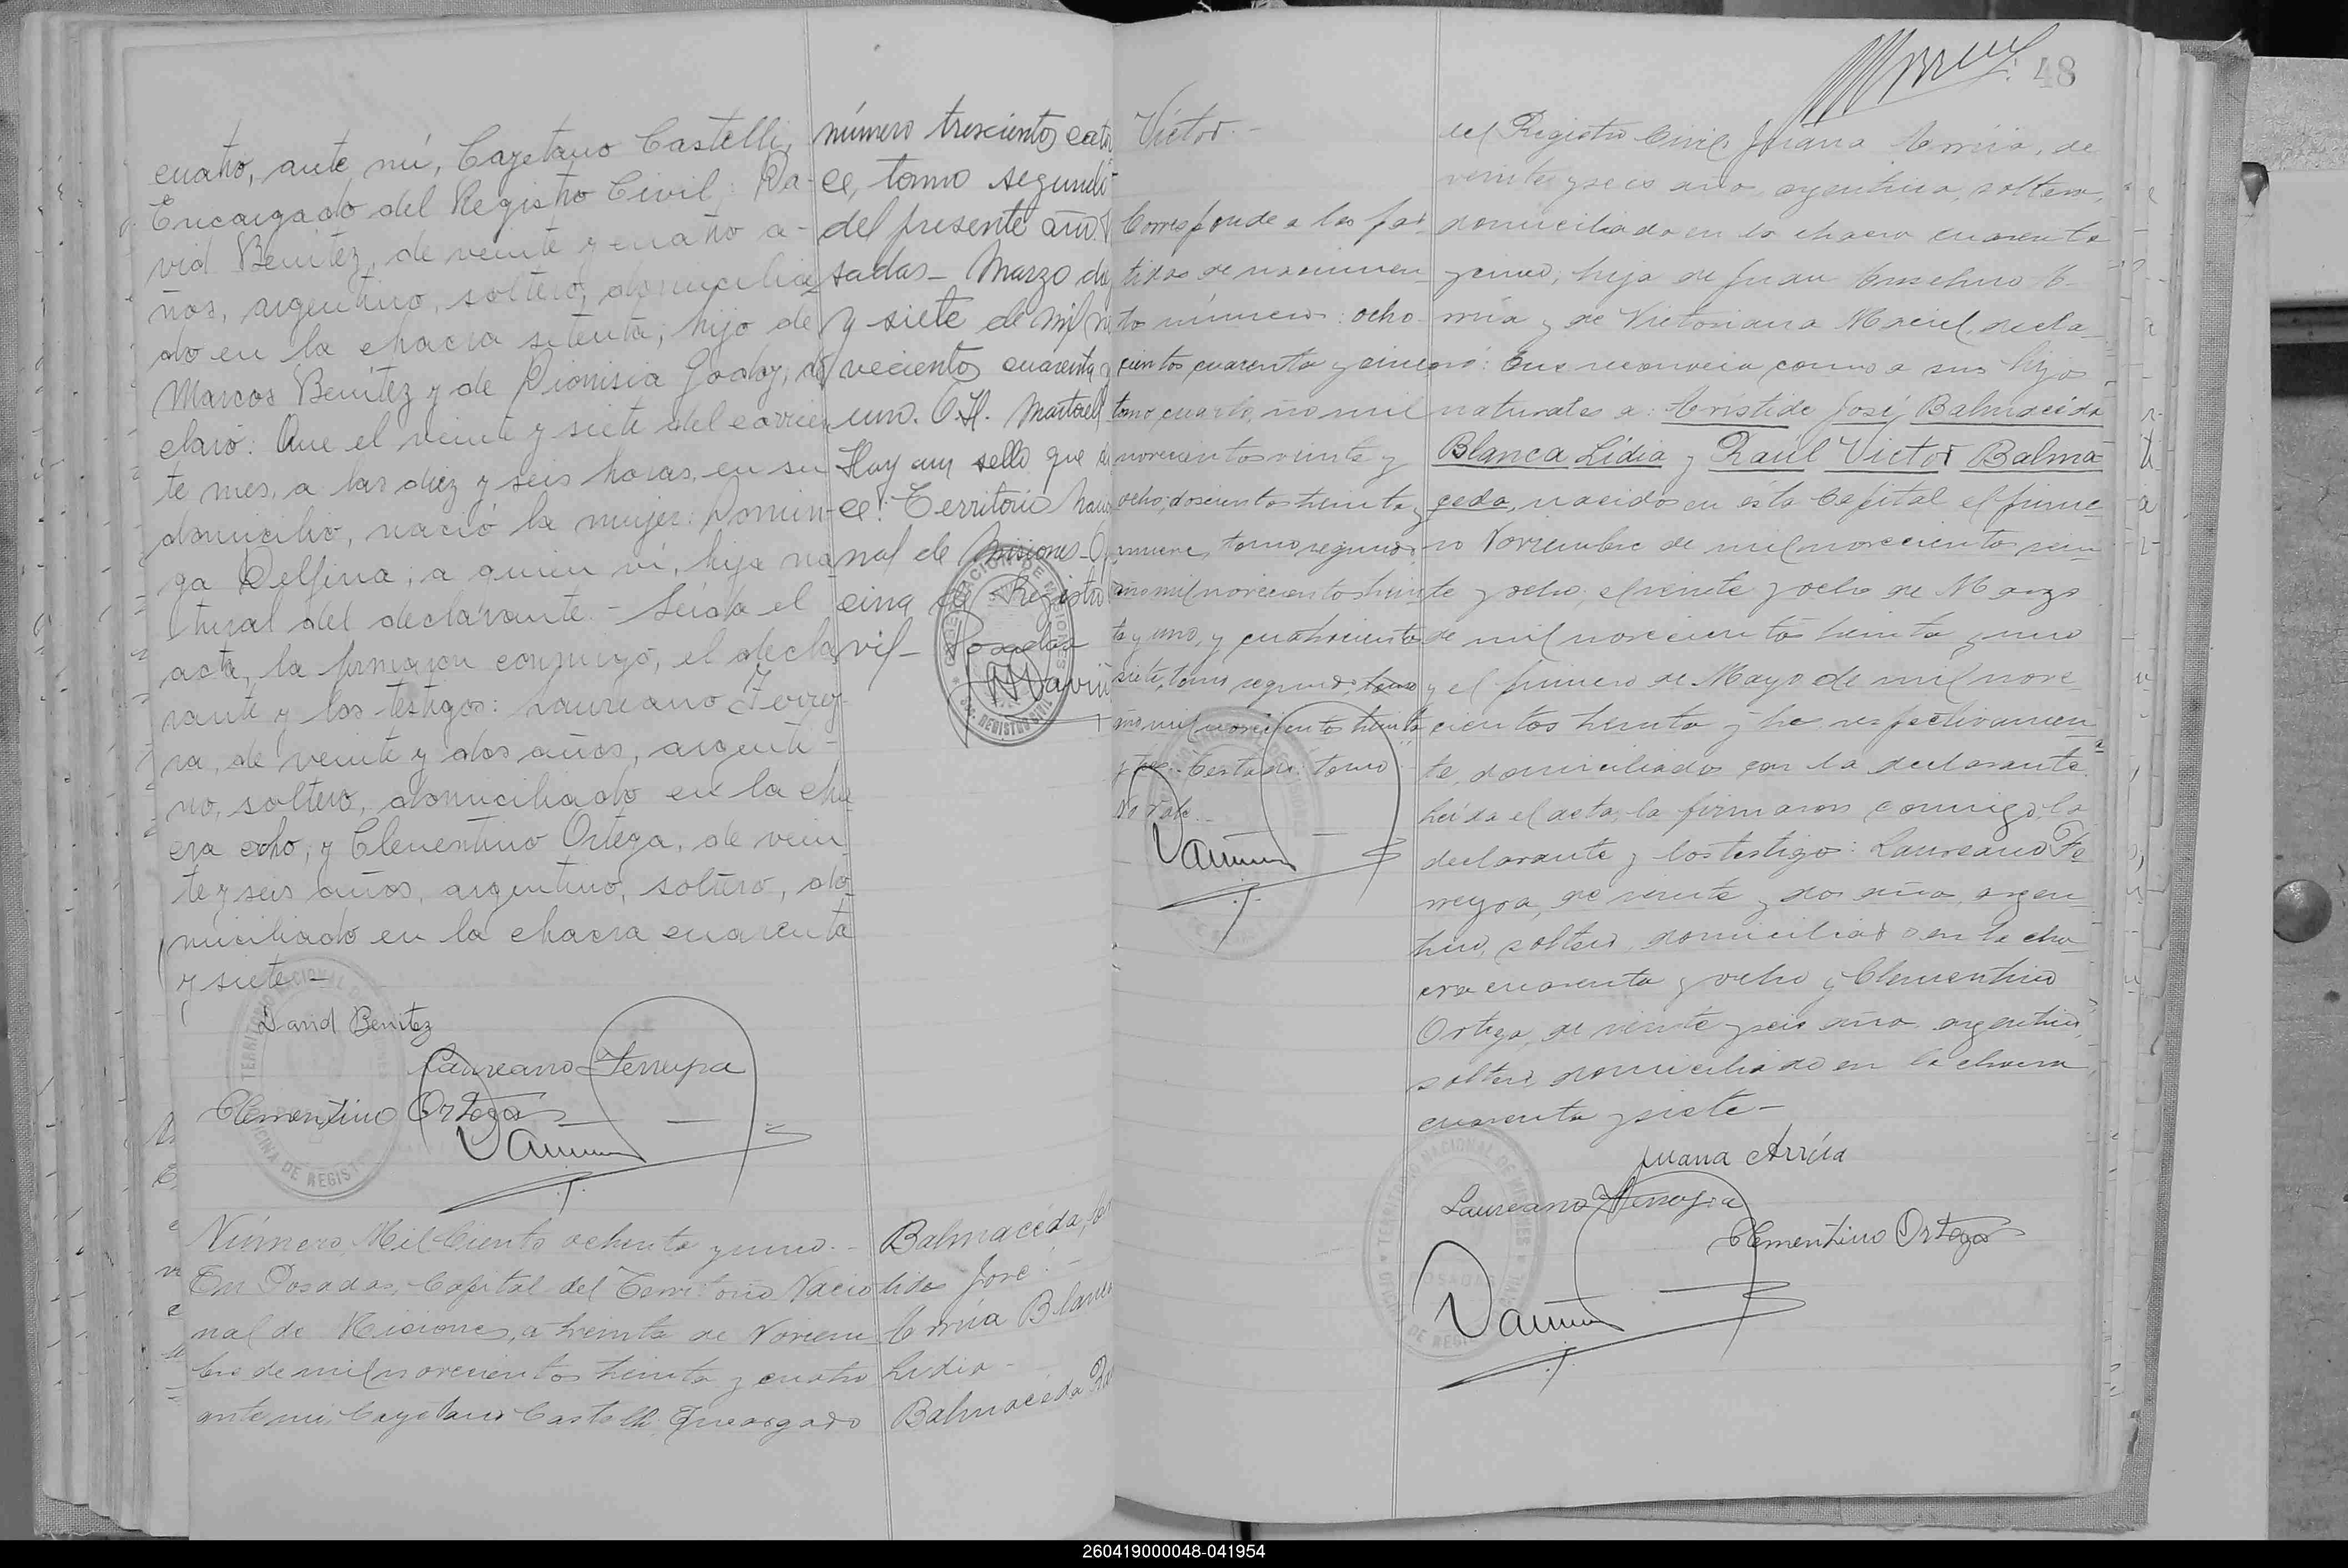 cuatro, ante mí, Cayetano Castelli,
Encargado del Registro Civil: Da-
vid Benítez, de veinte y cuatro a-
ños, argentino, soltero, domicilia-
do en la chacra setenta, hijo de
Marcos Benítez y de Dionisia Godoy, de
claró: Que el veinte y siete del corrien
te mes, a las diez y seis horas, en su
domicilio, nació la mujer: Domin-
ga Delfina; a quien ví, hija na
tural del declarante.- Leída el
acta, la firmaron conmigo, el decla
rante y los testigos: Laureano Ferrey
ra, de veinte y dos años, argenti-
no, soltero, domiciliado en la cha
cra ocho; y Clementino Ortega, de vein
te y seis años, argentino, soltero, do-
miciliado en la chacra cuarenta
y siete.-
David Benitez
Laureano Ferreyra
Clementino Ortega
número trescientos cator
ce, tomo segundo
del presente año.
sadas- Marzo
y siete de mil no
vecientos cuarenta y
uno. Martorell
Hay un sello que di
ce: Territorio Nacio
nal de Misiones- O
cina de Registro
vil- Posadas
Número Mil Ciento ochenta y uno.-
En Posadas, Capital del Territorio Nacio
nal de Misiones, a treinta de Noviem
bre de mil novecientos treinta y cuatro
ante mi, Cayetano Castelli, Encargado
Balmaceda,
tides José.-
Arrúa Blanca
Lidia-
Balmaceda Ra
48
Víctor.-
Corresponde a las par
tidas de nacimien
to números: ocho-
cientos cuarenta y cinco
tomo cuarto, año mil
novecientos veinte y
ocho; doscientos treinta y
nueve, tomo segundo,
año mil novecientos trein
ta y uno, y cuatrocientos
siete, tomo segundo, tomo
año mil novecientos treinta
y tres.- Testado: tomo:
No vale.-
del Registro Civil: Juana Arrúa, de
veinte y seis años, argentina, soltera,
domiciliada en la chacra cuarenta
y cinco, hija de Juan Anselmo A-
rrúa y de Victoriana Maciel, decla-
ró: Que reconocía como a sus hijos
naturales a: Arístide José Balmaceda
Blanca Lidia y Raúl Víctor Balma-
ceda, nacidos en ésta Capital el prime-
ro Noviembre de mil novecientos vein
te y ocho, el veinte y ocho de Marzo
de mil novecientos treinta y uno
y el primero de Mayo de mil nove-
cientos treinta y tres respectivamen
te, domiciliados con la declarante.
Leída el acta, la firmaron conmigo, la
declarante y los testigos: Laureano Fe
rreyra, de veinte y dos años, argen-
tino, soltero, domiciliado en la cha-
cra cuarenta y ocho y Clementino
Ortega, de veinte y seis años, argentino,
soltero, domiciliado en la chacra
cuarenta y siete-
Juana Arrúa
Laureano Ferreyra
Clementino Ortega
260419000048-041954